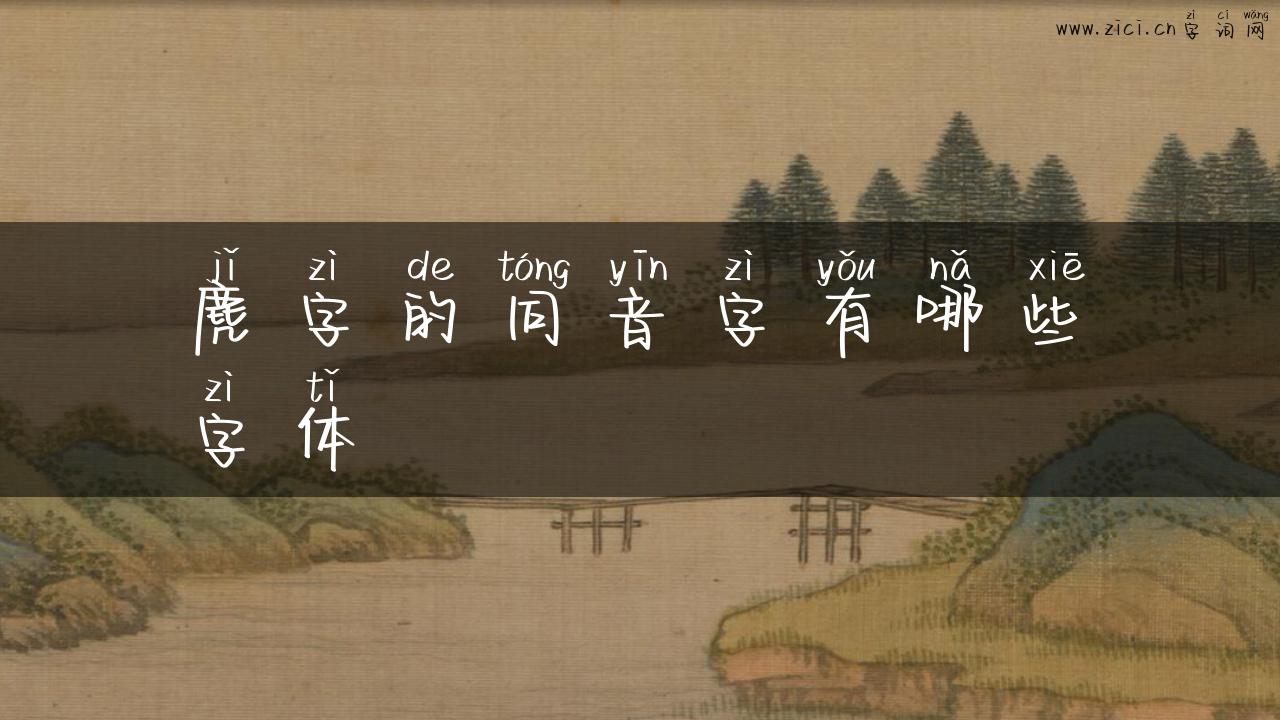 zì cí wǎng
www.zici.cn 字词网
jǐ zì de tóng yīn zì yǒu nǎ xiē
麂字的同音字有哪些
zì tǐ
字体